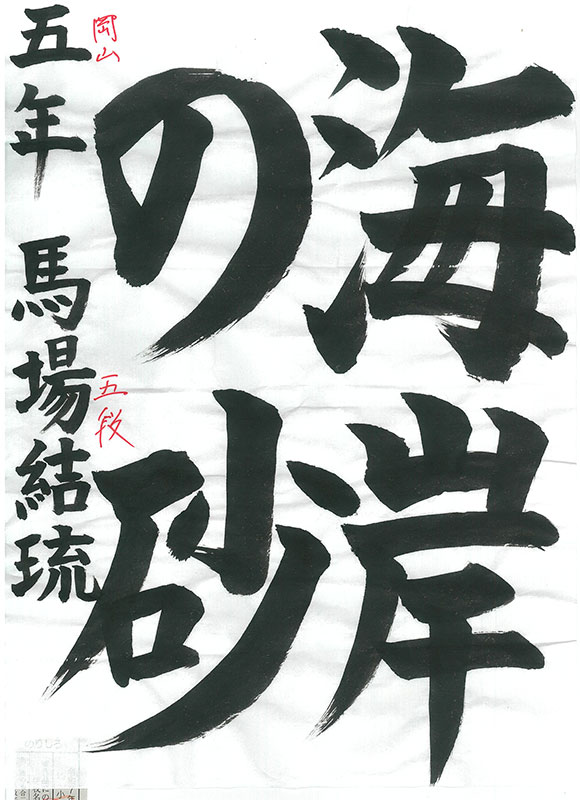 海岸
の砂
岡山
五年 馬場結琉
五段